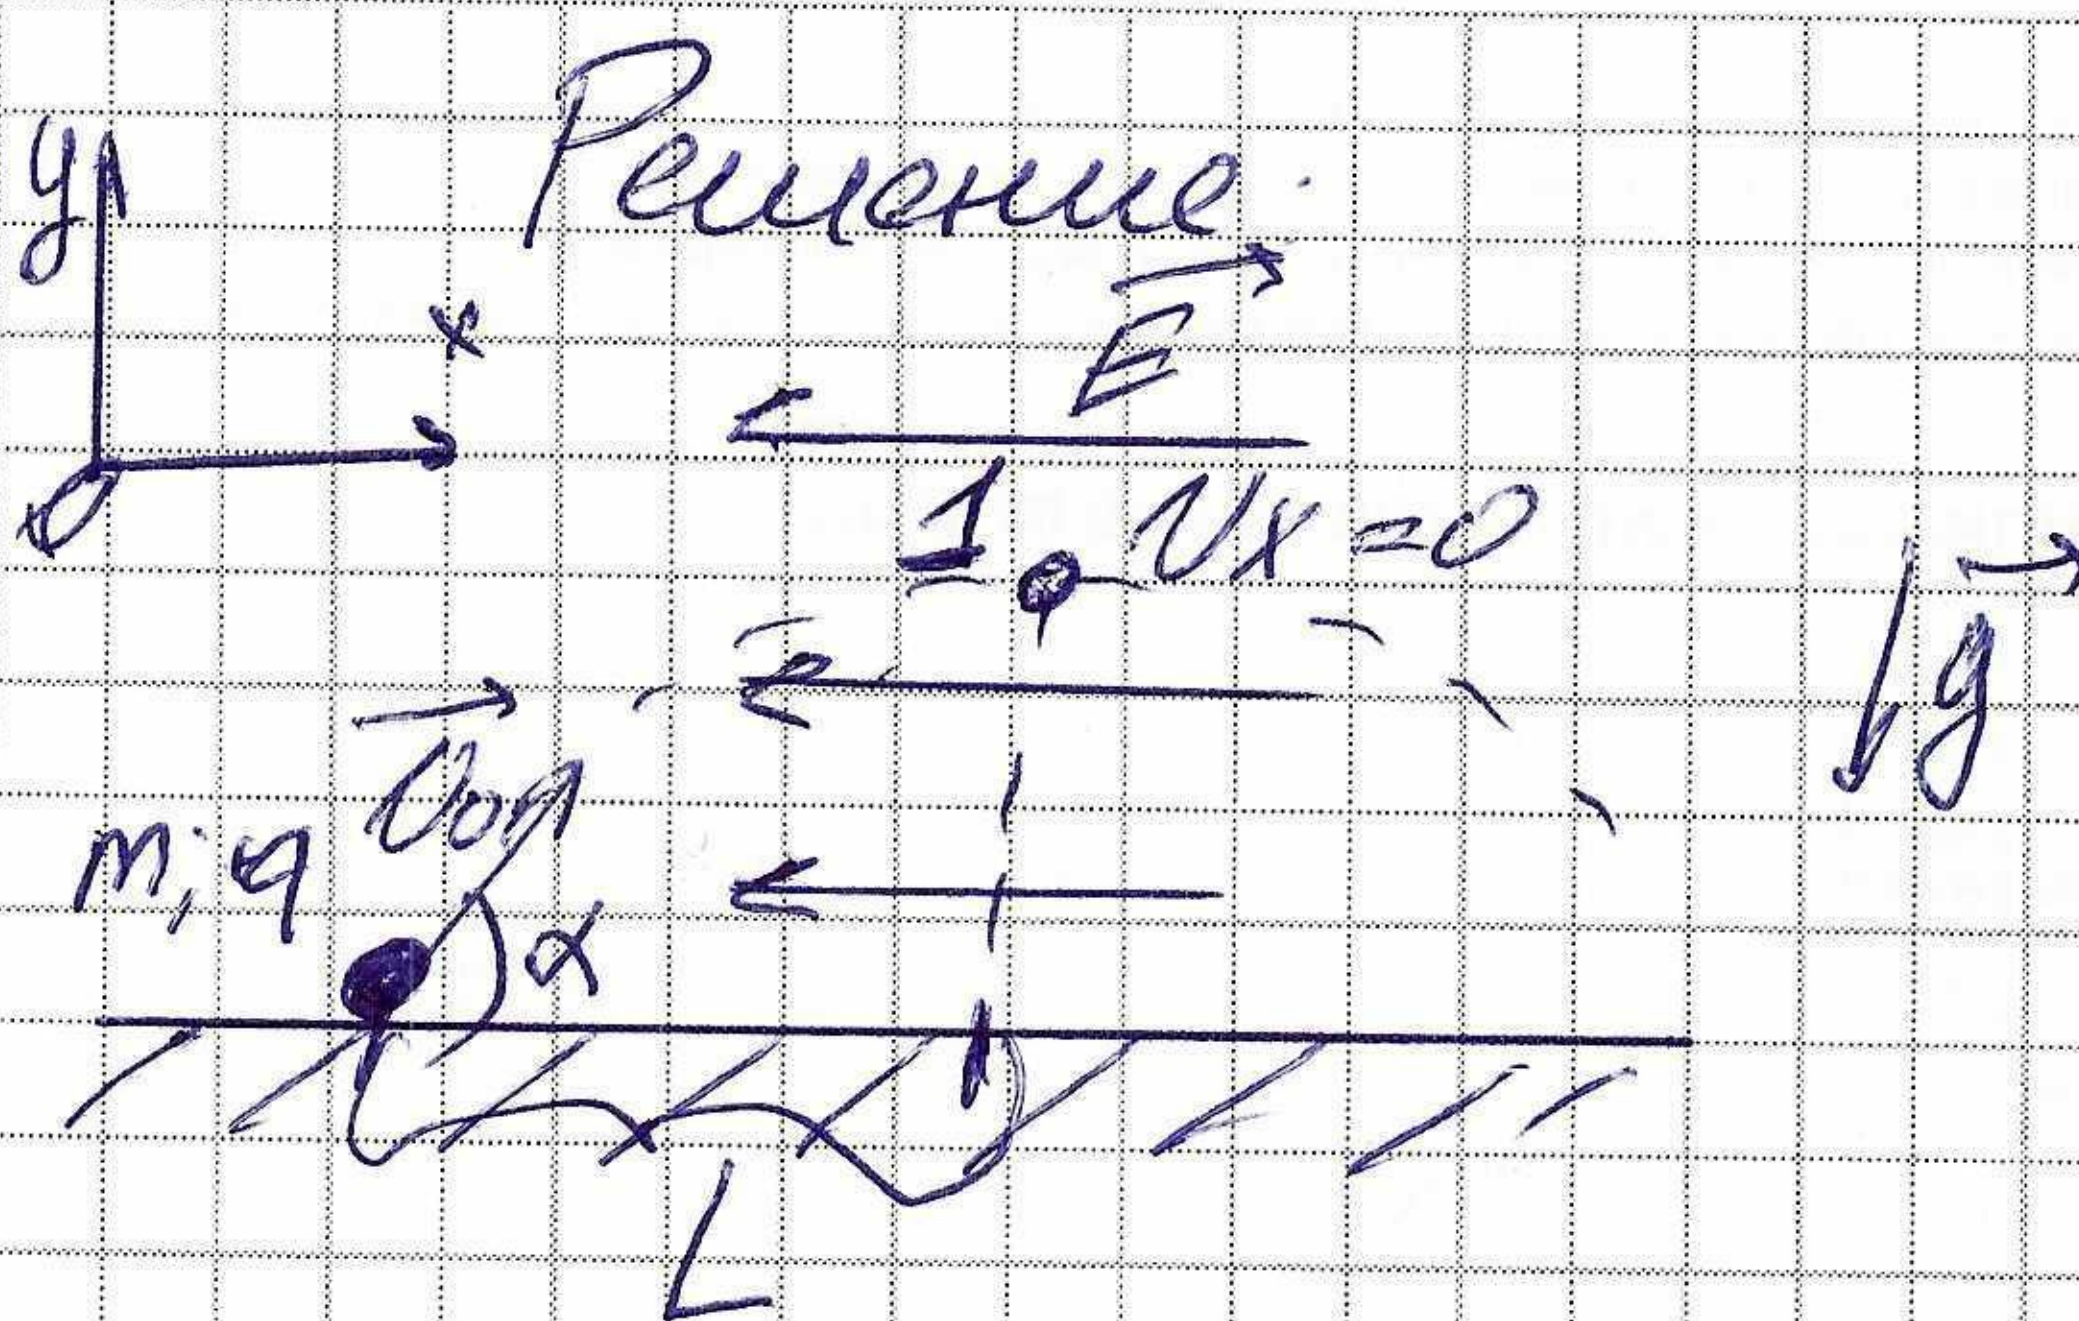 Решение.
y
x
E
0
1 Vx = 0
g
m; q
α
L